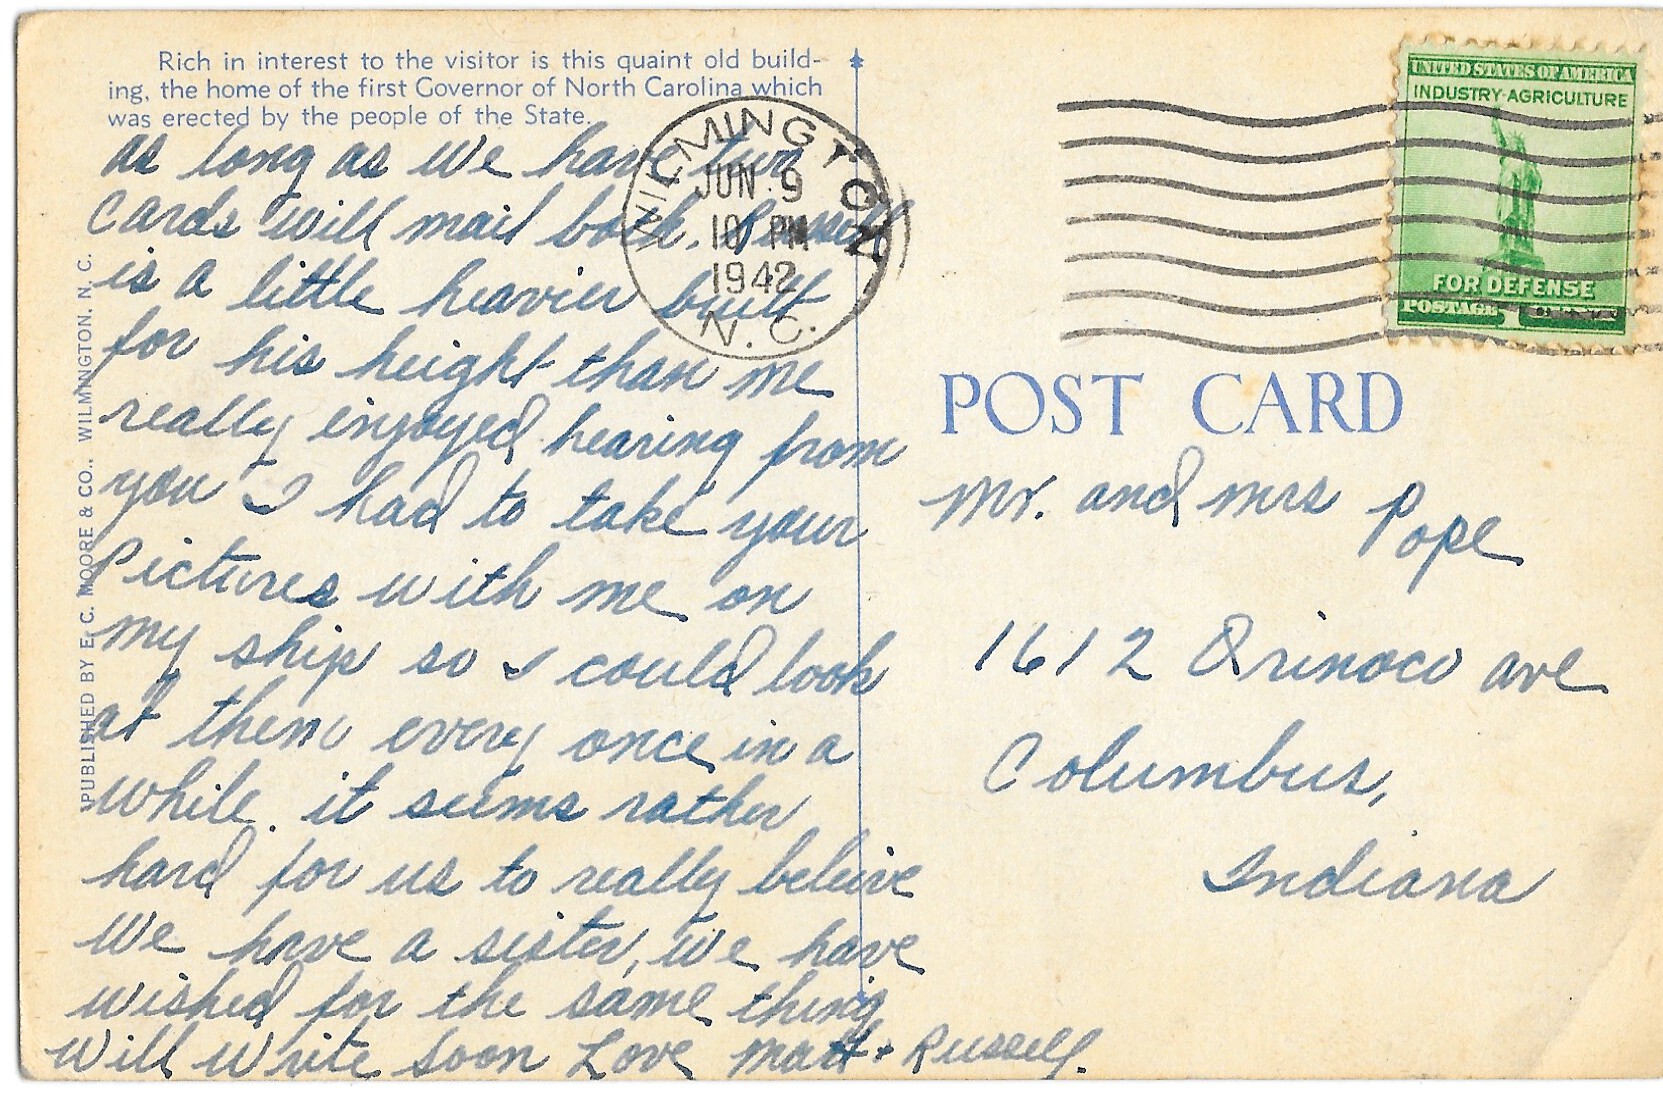 Rich in interest to the visitor is this quaint old build-
ing, the home of the first Governor of North Carolina which
was erected by the people of the State.
as long as we have two
Cards will mail both. Russell
is a little heavier built
for his height than me
really enjoyed hearing from
you I had to take your
Pictures with me on
my ship so I could look
at them every once in a
while. it seems rather
hard for us to really beleive
We have a sister, We have
wished for the same thing
Will Write soon Love Matt + Russell.
PUBLISHED BY E. C. MOORE & CO., WILMINGTON, N. C.
WILMINGTON
JUN 9
10 PM
1942
N. C.
UNITED STATES OF AMERICA
INDUSTRY-AGRICULTURE
FOR DEFENSE
POSTAGE 1
POST CARD
Mr. and Mrs Pope
1612 Orinoco ave
Columbus,
Indiana